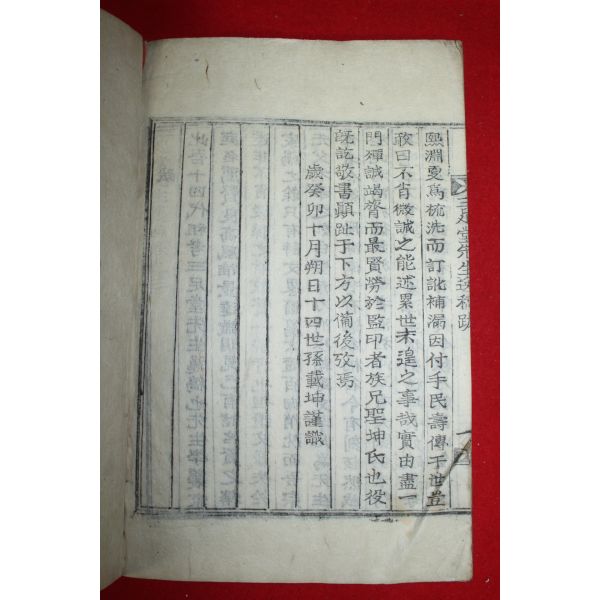 三足堂先生逸稿跋
熙淵更爲梳洗而訂訛補漏因付手民壽傳于世豈
敢曰不肖微誠之能述累世未遑之事哉實由盡一
門殫誠竭膂而最賢勞於監印者族兄聖坤氏也役
旣訖敬書顚趾于下方以備後攷焉
歲癸卯十月朔日十四世孫載坤謹識